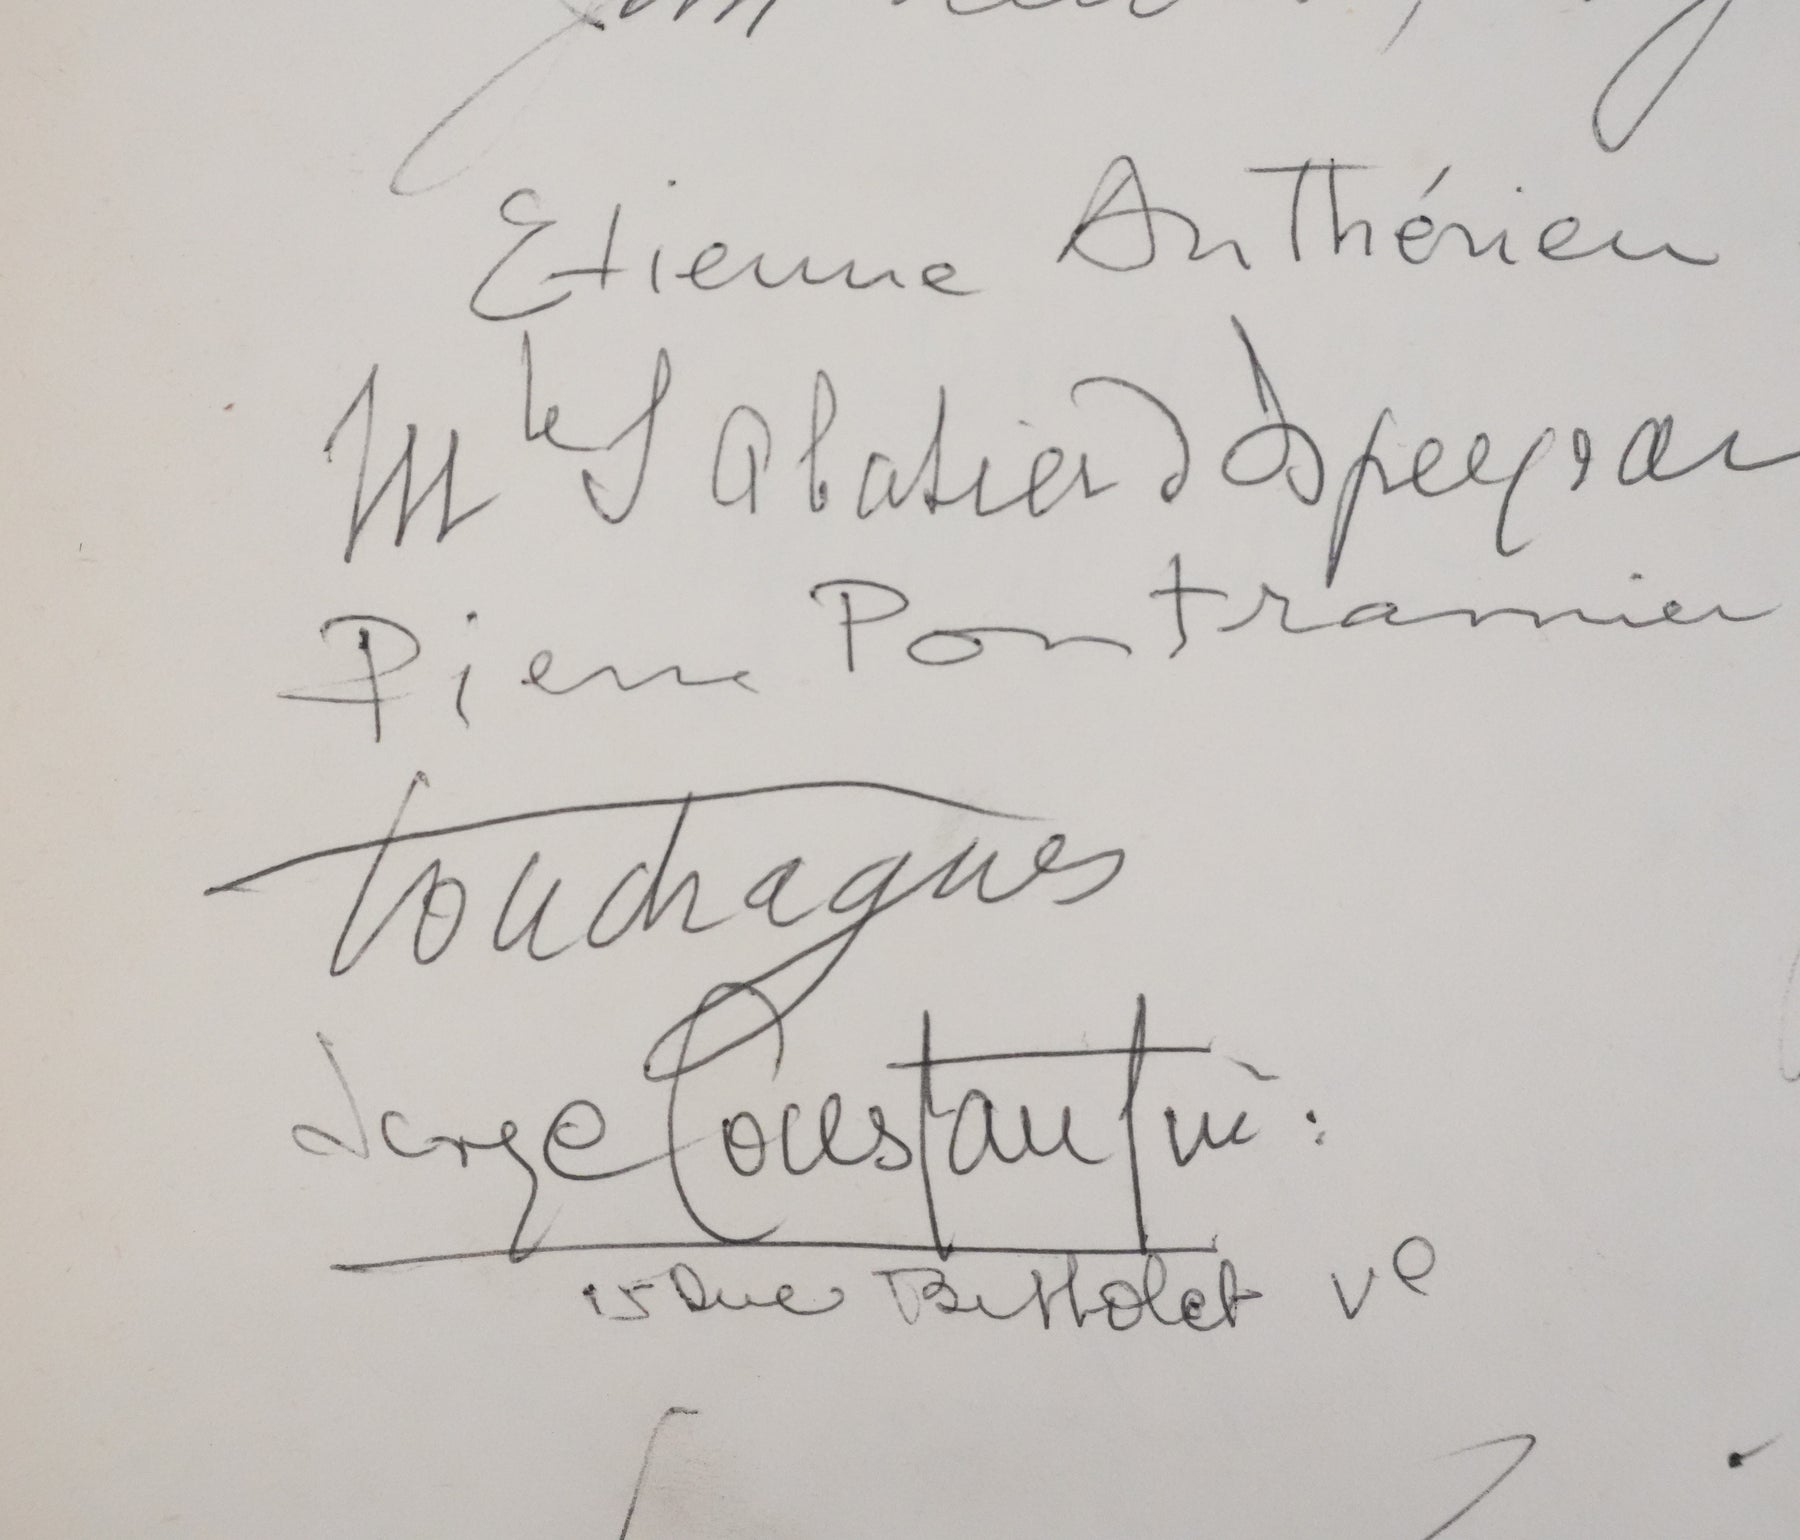 Etienne Anthérieu
Mle Sabatier d'Espeyran
Pierre Pontramier
Touchagues
Serge Constantin :
15 Rue Berthollet Ve